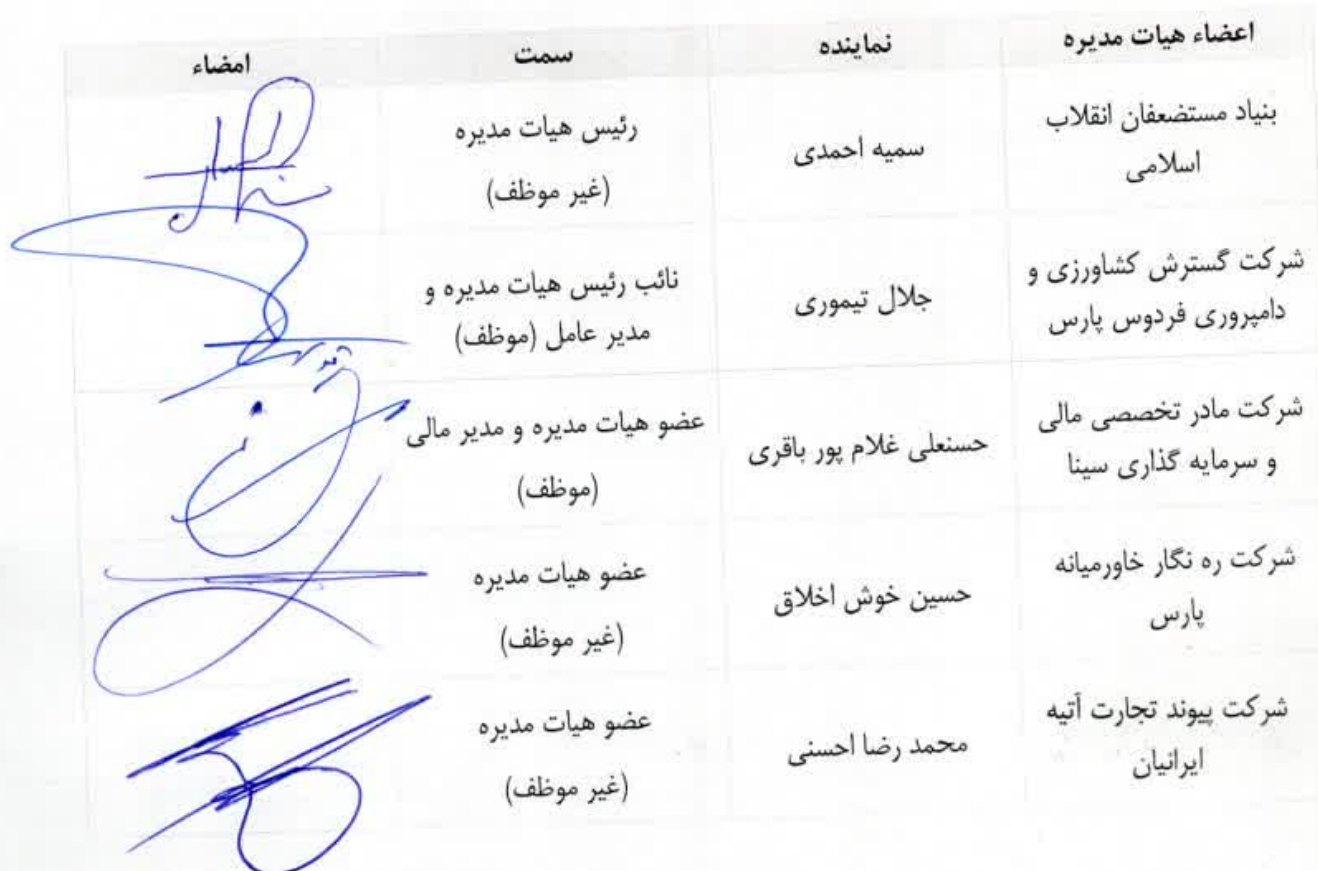 اعضاء هیات مدیره نماینده سمت امضاء
بنیاد مستضعفان انقلاب
اسلامی
سمیه احمدی
رئیس هیات مدیره
(غیر موظف)
شرکت گسترش کشاورزی و
دامپروری فردوس پارس
جلال تیموری
نائب رئیس هیات مدیره و
مدیر عامل (موظف)
شرکت مادر تخصصی مالی
و سرمایه گذاری سینا
حسنعلی غلام پور باقری
عضو هیات مدیره و مدیر مالی
(موظف)
شرکت ره نگار خاورمیانه
پارس
حسین خوش اخلاق
عضو هیات مدیره
(غیر موظف)
شرکت پیوند تجارت آتیه
ایرانیان
محمد رضا احسنی
عضو هیات مدیره
(غیر موظف)